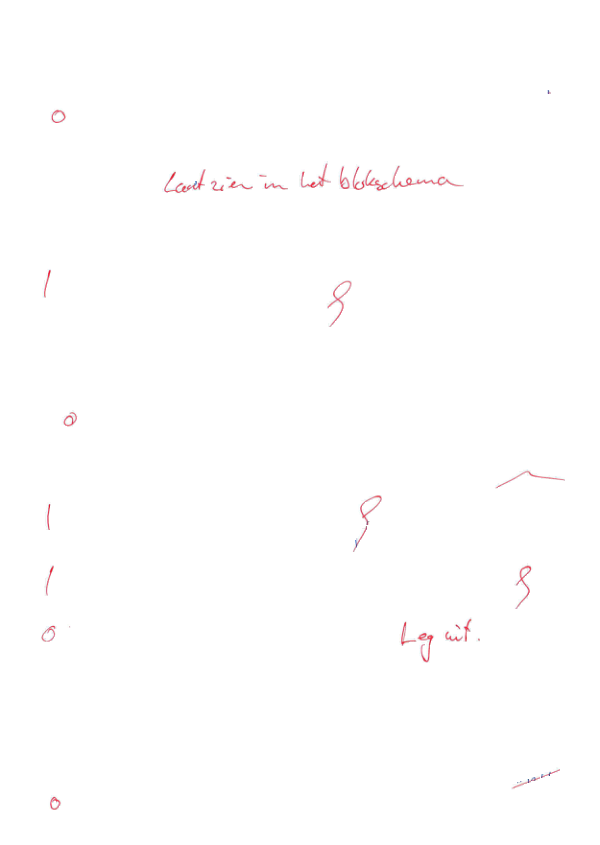 0
Laat zien in het blokschema
1
0
1
1
0 Leg uit.
0